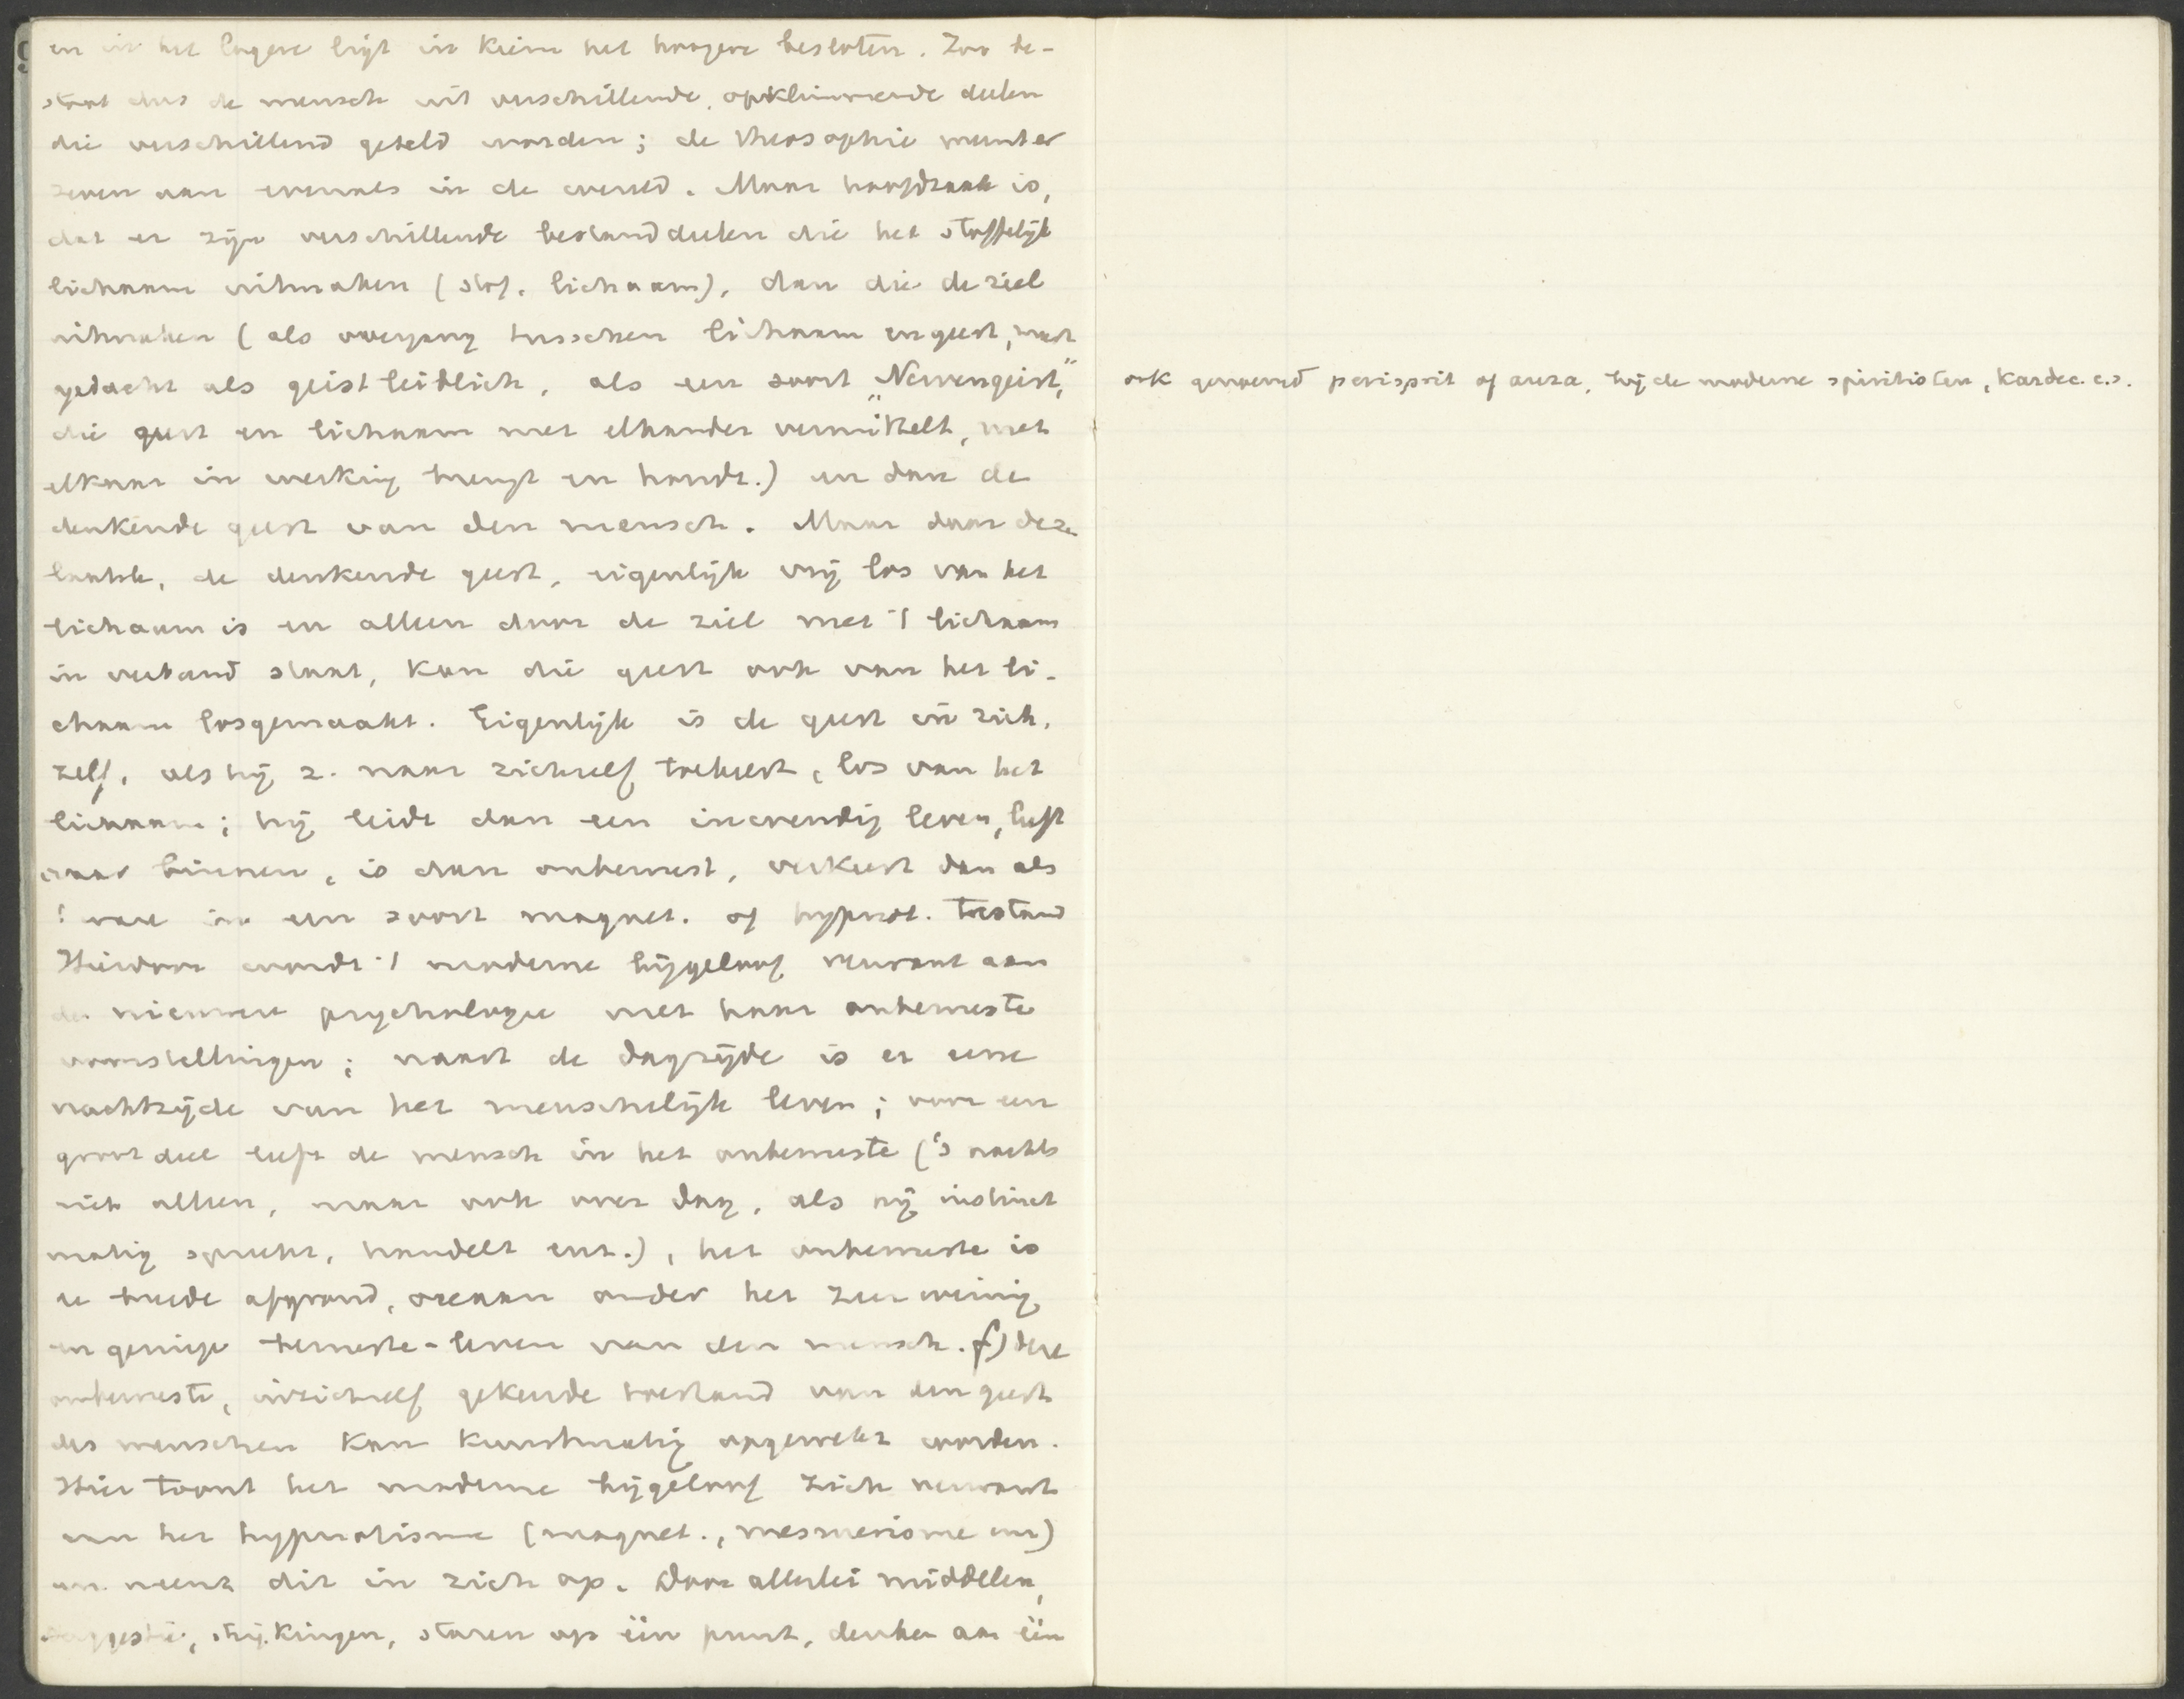 en in het lagere ligt in kiem het hoogere besloten. Zoo be-
staat dus de mensch uit verschillende, opklimmende deelen
die verschillend geteld worden; de theosophie neemt er
zeven aan evenals in de wereld. Maar hoofdzaak is,
dat er zijn verschillende bestanddeelen die het stoffelijk
lichaam uitmaken (stof. lichaam), dan die de ziel
uitmaken (als overgang tusschen lichaam en geest, meest
gedacht als geistleiblich, als een soort „Nervengeist",
die geest en lichaam met elkander vermittelt, met
elkaar in werking brengt en houdt.) en dan de
denkende geest van den mensch. Maar daar deze
laatste, de denkende geest, eigenlijk vrij los van het
lichaam is en alleen door de ziel met 't lichaam
in verband staat, kan die geest ook van het li-
chaam losgemaakt. Eigenlijk is de geest in zich-
zelf, als hij z. naar zichzelf toekeert, los van het
lichaam; hij leidt dan een inwendig leven, leeft
naar binnen, is dan onbewust, verkeert dan als
't ware in een soort magnet. of hypnot. toestand
Hierdoor wordt 't moderne bijgeloof verwant aan
de nieuwere psychologie met haar onbewuste
voorstellingen; naast de dagzijde is er eene
nachtzijde van het menschelijk leven; voor een
groot deel leeft de mensch in het onbewuste ('s nachts
niet alleen, maar ook over dag, als hij instinct
matig spreekt, handelt enz.), het onbewuste is
de breede afgrond, oceaan onder het zeer weinig
en geringe bewuste-leven van den mensch. f) deze
onbewuste, inzichzelf gekeerde toestand van den geest
des menschen kan kunstmatig opgewekt worden.
Hier toont het moderne bijgeloof zich verwant
aan het hypnotisme (magnet., mesmerisme enz)
en neemt dit in zich op. Door allerlei middelen,
suggestie, strijkingen, staren op één punt, denken aan één
ook genoemd perisprit of aura, bij de moderne spiritisten, Kardec e.s.